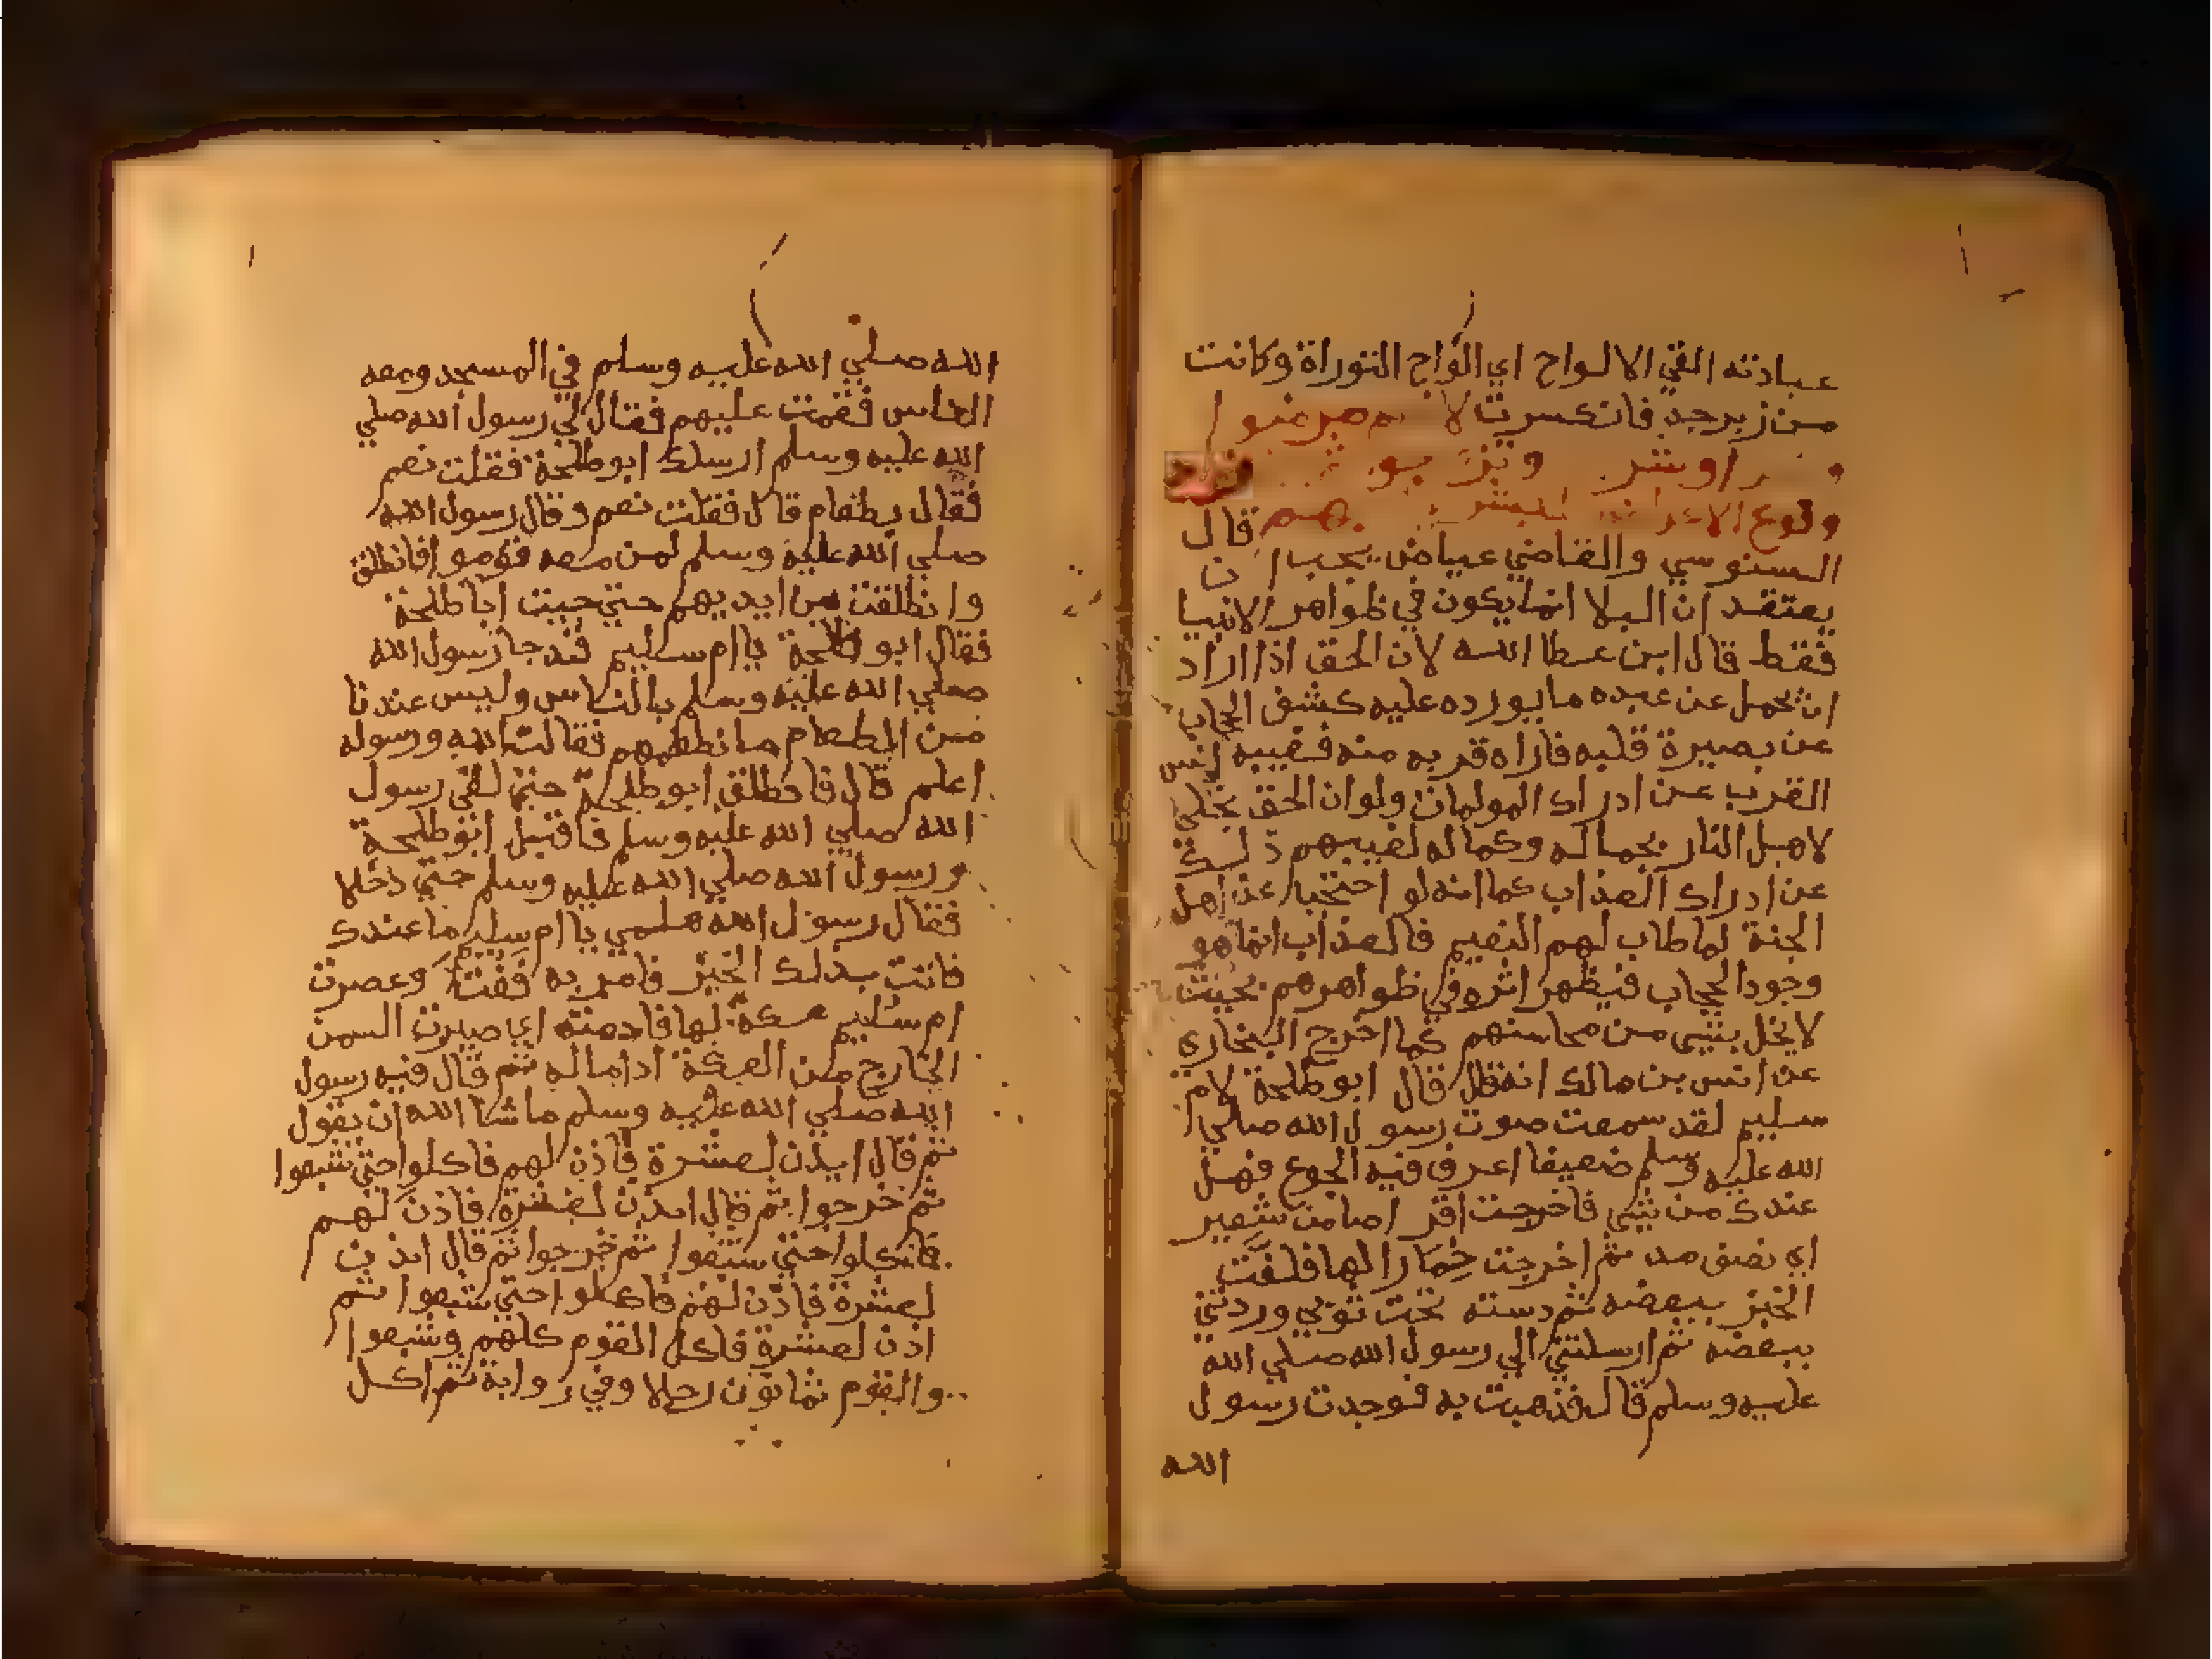 عبادته القي الالواح اي الواح التوراة وكانت
من زبرجد فانكسرت لا
وقوع الاعراض البشر بهم قال
السنوسي والقاضي عياض يجب ان
يعتقد ان البلا انما يكون في ظواهر الانبيا
فقط قال ابن عطا الله لان الحق اذا اراد
ان يحمل عن عبده ما يورده عليه كشف الحجاب
عن بصيرة قلبه فاراه قربه منه فغيبه انس
القرب عن ادراك المولمات ولو ان الحق تجلى
لاهل النار بجماله وكماله لغيبهم ذلك
عن ادراك العذاب كما انه لو احتجبا عن اهل
الجنة لما طاب لهم النعيم فالعذاب انما هو
وجود الحجاب فيظهر اثره في ظواهرهم بحيث
لا يخل بشي من محاسنهم كما اخرج البخاري
عن انس بن مالك انه قال قال ابو طلحة لام
سليم لقد سمعت صوت رسول الله صلي
الله عليه وسلم ضعيفا اعرف فيه الجوع فهل
عندك من شي فاخرجت اقراصا من شعير
اي نصف مد ثم اخرجت خمارا لها فلفت
الخبز ببعضه ثم دسته تحت ثوبي وردتني
ببعضه ثم ارسلتني الي رسول الله صلي الله
عليه وسلم قال فذهبت به فوجدت رسول
الله
الله صلي الله عليه وسلم في المسجد ومعه
الناس فقمت عليهم فقال لي رسول الله صلي
الله عليه وسلم ارسلك ابو طلحة فقلت نعم
فقال بطعام قال فقلت نعم وقال رسول الله
صلي الله عليه وسلم لمن معه قوموا فانطلق
وانطلقت من ايديهم حتي جيت ابا طلحة
فقال ابو طلحة يا ام سليم قد جا رسول الله
صلي الله عليه وسلم بالناس وليس عندنا
من الطعام ما نطعمهم فقالت الله ورسوله
اعلم قال فانطلق ابو طلحة حتي لقي رسول
الله صلي الله عليه وسلم فاقبل ابو طلحة
ورسول الله صلي الله عليه وسلم حتي دخلا
فقال رسول الله هلمي يا ام سليم ما عندك
فاتت بذلك الخبز فامر به ففت وعصرت
ام سليم عكة لها فادمته اي صيرت السمن
الخارج من العكة اداما له ثم قال فيه رسول
الله صلي الله عليه وسلم ما شا الله ان يقول
ثم قال ايذن لعشرة فاذن لهم فاكلوا حتي شبعوا
ثم خرجوا ثم قال ايذن لعشرة فاذن لهم
فاكلوا حتي شبعوا ثم خرجوا ثم قال ايذن
لعشرة فاذن لهم فاكلوا حتي شبعوا ثم
اذن لعشرة فاكل القوم كلهم وشبعوا
والقوم ثمانون رجلا وفي رواية ثم اكل